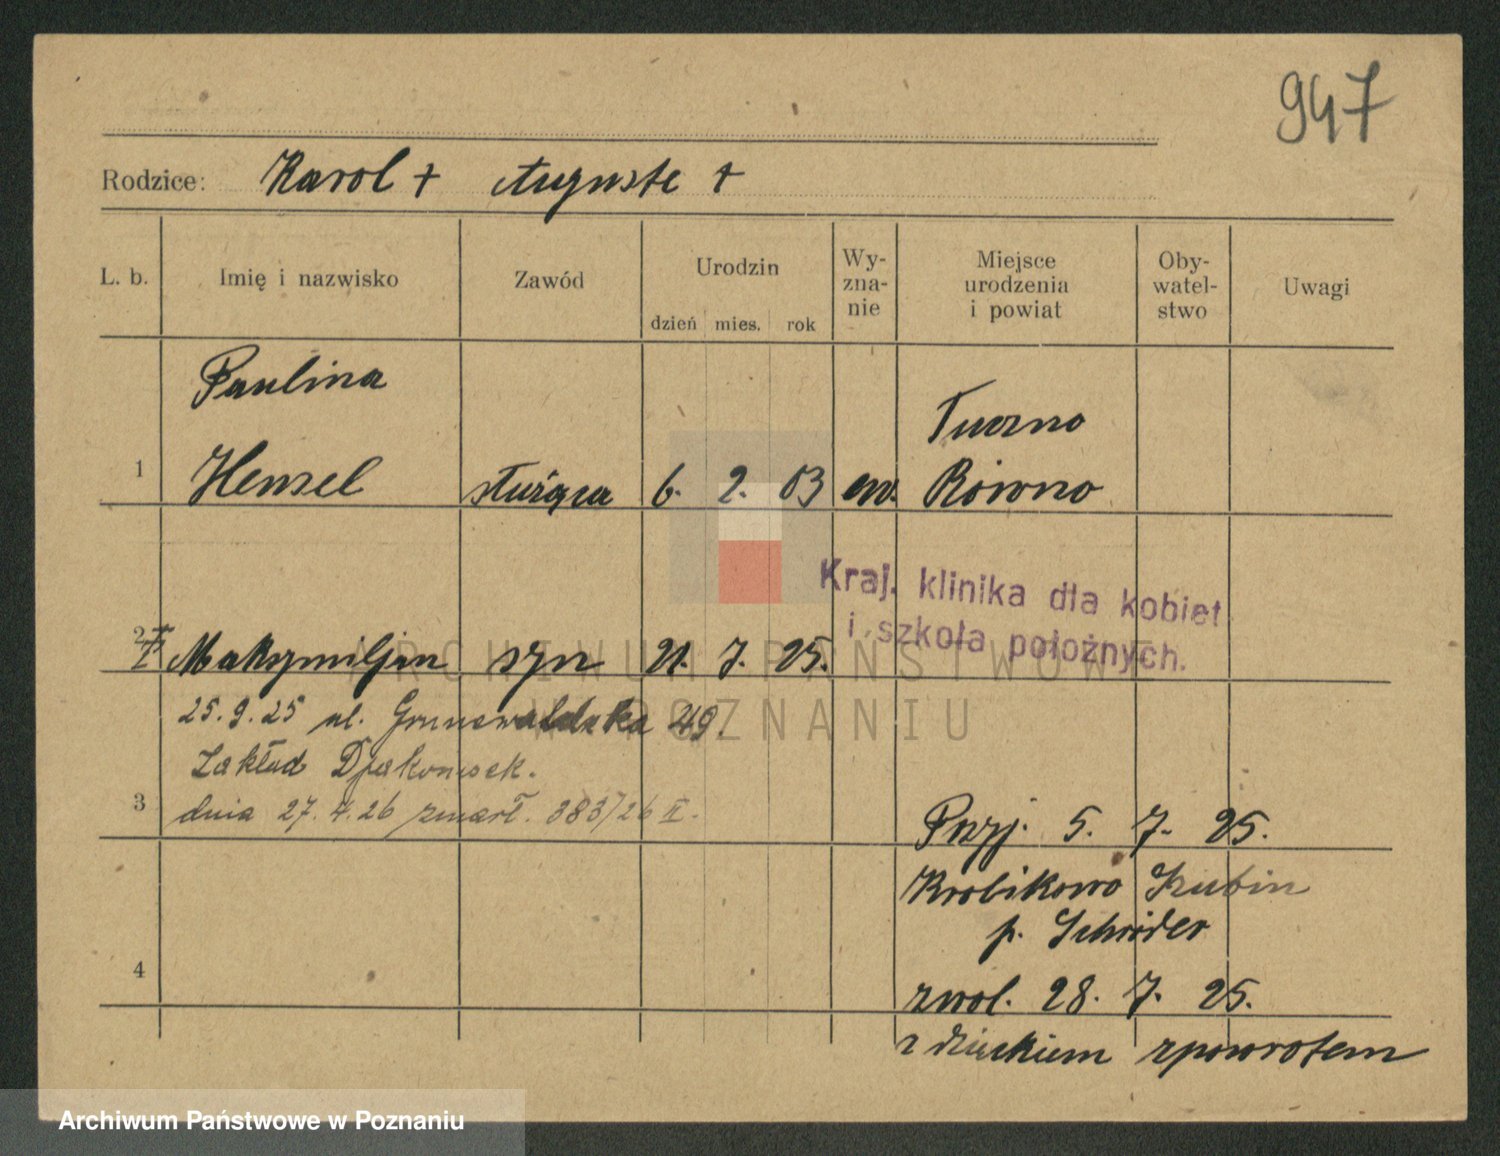 947
Rodzice: Karol + Auguste +
L. b. Imię i nazwisko Zawód Urodzin dzień mies. rok Wy-zna-nie Miejsce urodzenia i powiat Oby-watel-stwo Uwagi
Paulina Tuczno
1 Hensel służąca 6. 2. 03 ew. Równo
Kraj. klinika dla kobiet
i szkoła położnych.
2 Maksymiljan syn 21. 7. 25.
25.9.25 ul. Grunwaldzka 49.
Zakład Djakonisek.
3 dnia 27.4.26 zmarł. 383/26 II.
Przyj. 5. 7. 25.
Krobikowo Szubin
p. Schröder
4 zwol. 28. 7. 25.
z dzieckiem zpowrotem
ARCHIWUM PAŃSTWOWE
W POZNANIU
Archiwum Państwowe w Poznaniu